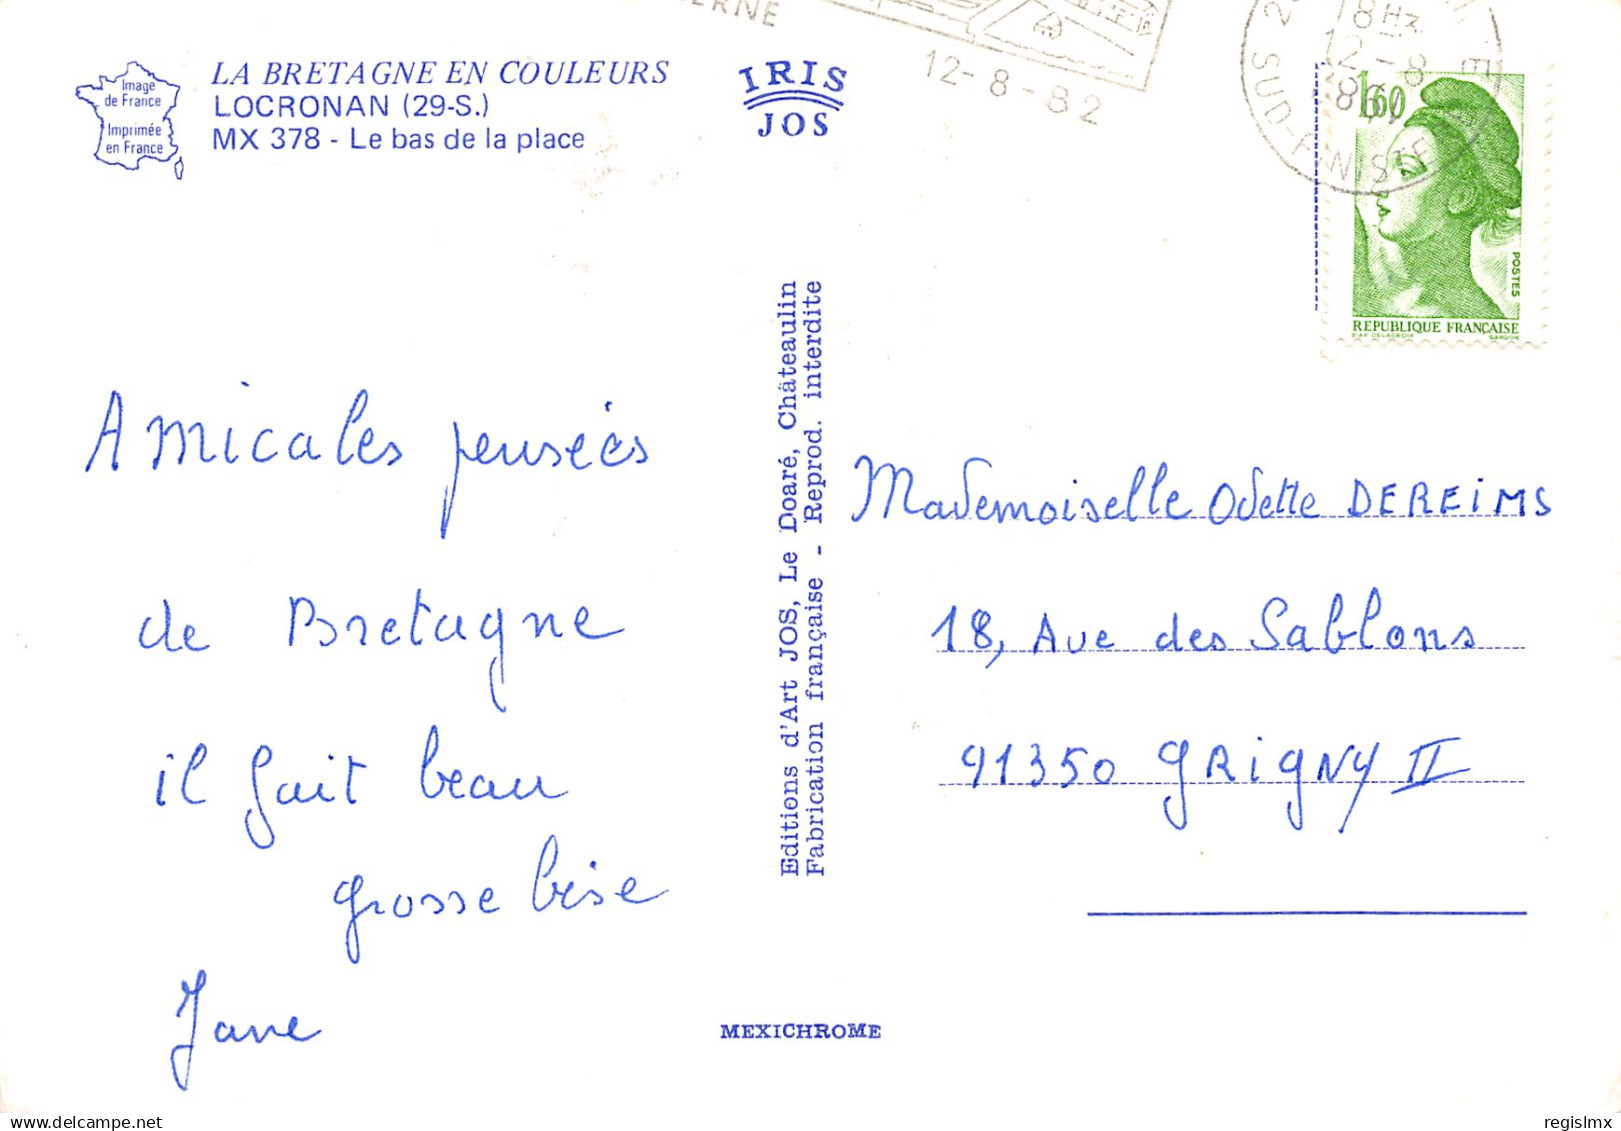 Image
de France
Imprimée
en France
LA BRETAGNE EN COULEURS
LOCRONAN (29-S.)
MX 378 - Le bas de la place
IRIS
JOS
12-8-82
18 Hz
12-8
SUD-FINISTE
1,60
POSTES
REPUBLIQUE FRANÇAISE
D'AP. DELACROIX
GANDON
Amicales pensées
de Bretagne
il fait beau
grosse bise
Jane
Editions d'Art JOS, Le Doaré, Châteaulin
Fabrication française - Reprod. interdite
Mademoiselle Odette DEREIMS
18, Ave des Sablons
91350 GRIGNY II
MEXICHROME
delcampe.net
regislmx